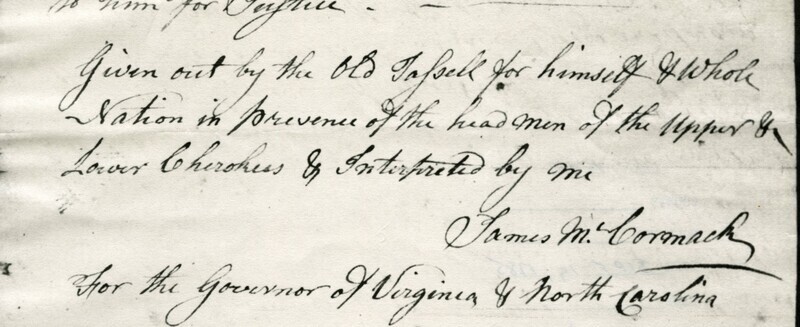 to him for Justice. -
Given out by the Old Tassell for himself & Whole
Nation in presence of the head men of the Upper &
Lower Cherokees & Interpreted by me
James McCormack
For the Governor of Virginia & North Carolina